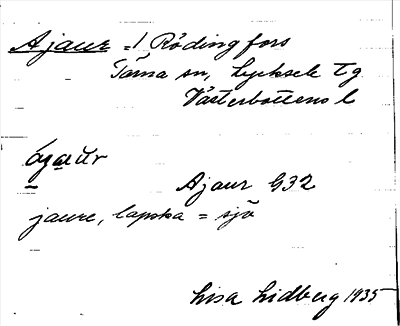 Ajaur = 1, Rödingfors
Tärna sn, Lycksele tg
Västerbottens l
Ajaur G32
jaure, lapska = sjö
Lisa Lidberg 1935